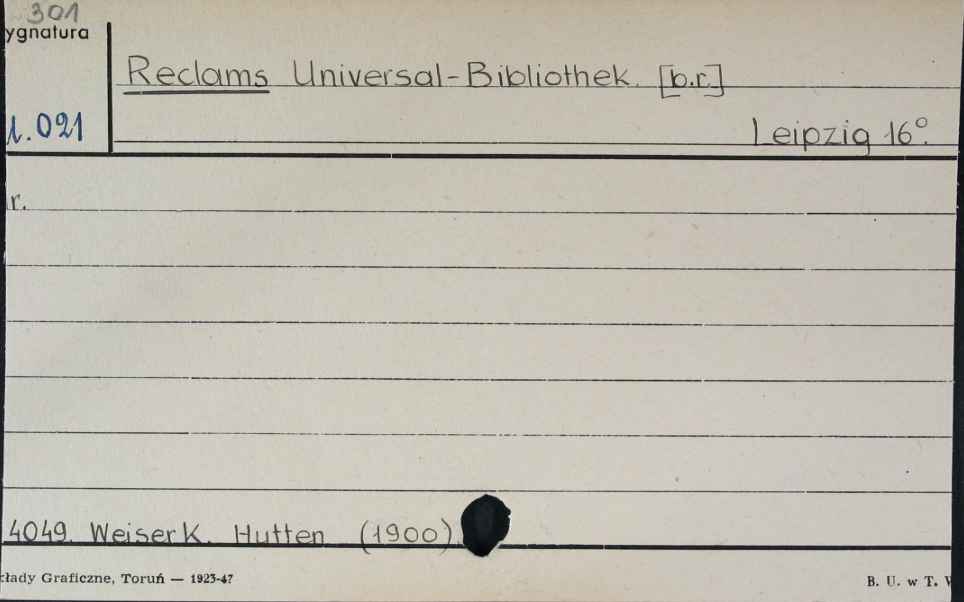 301
ygnatura
Reclams Universal-Bibliothek. [b.r.]
1.021
Leipzig 16°.
r.
4049. Weiser K. Hutten (1900)
kłady Graficzne, Toruń — 1923-47
B. U. w T.